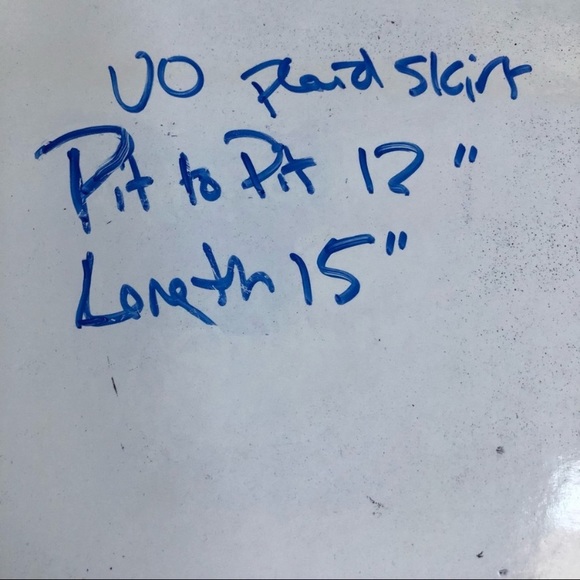 UO Plaid skirt
Pit to Pit 12"
Length 15"